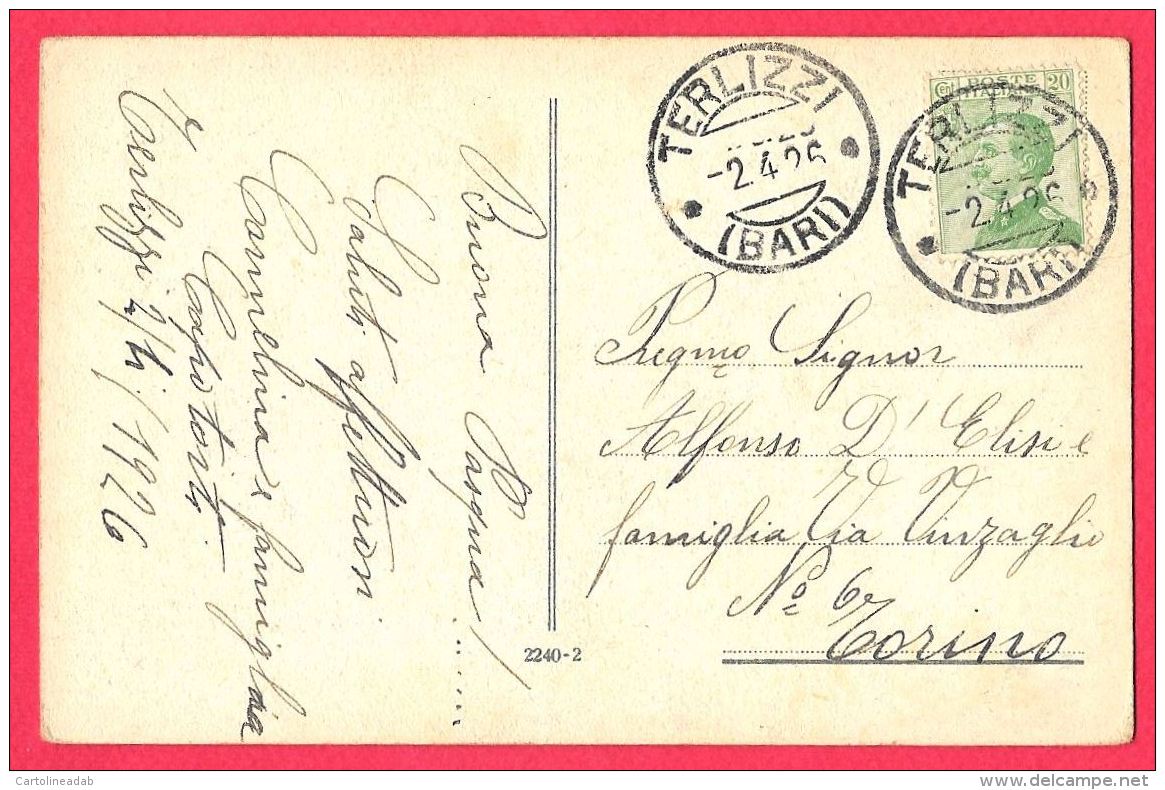 Buona Pasqua!
Saluti affettuosi
Carmelina e famiglia
Terlizzi 2/4/1926
TERLIZZI
-2.4.26
(BARI)
Cent POSTE 20
ITALIANE
TERLIZZI
-2.4.26
(BARI)
Pregmo Signor
Alfonso D'Elisi e
famiglia Via Vinzaglio
No 6
Torino
2240-2
Cartolineadab
delcampe.net